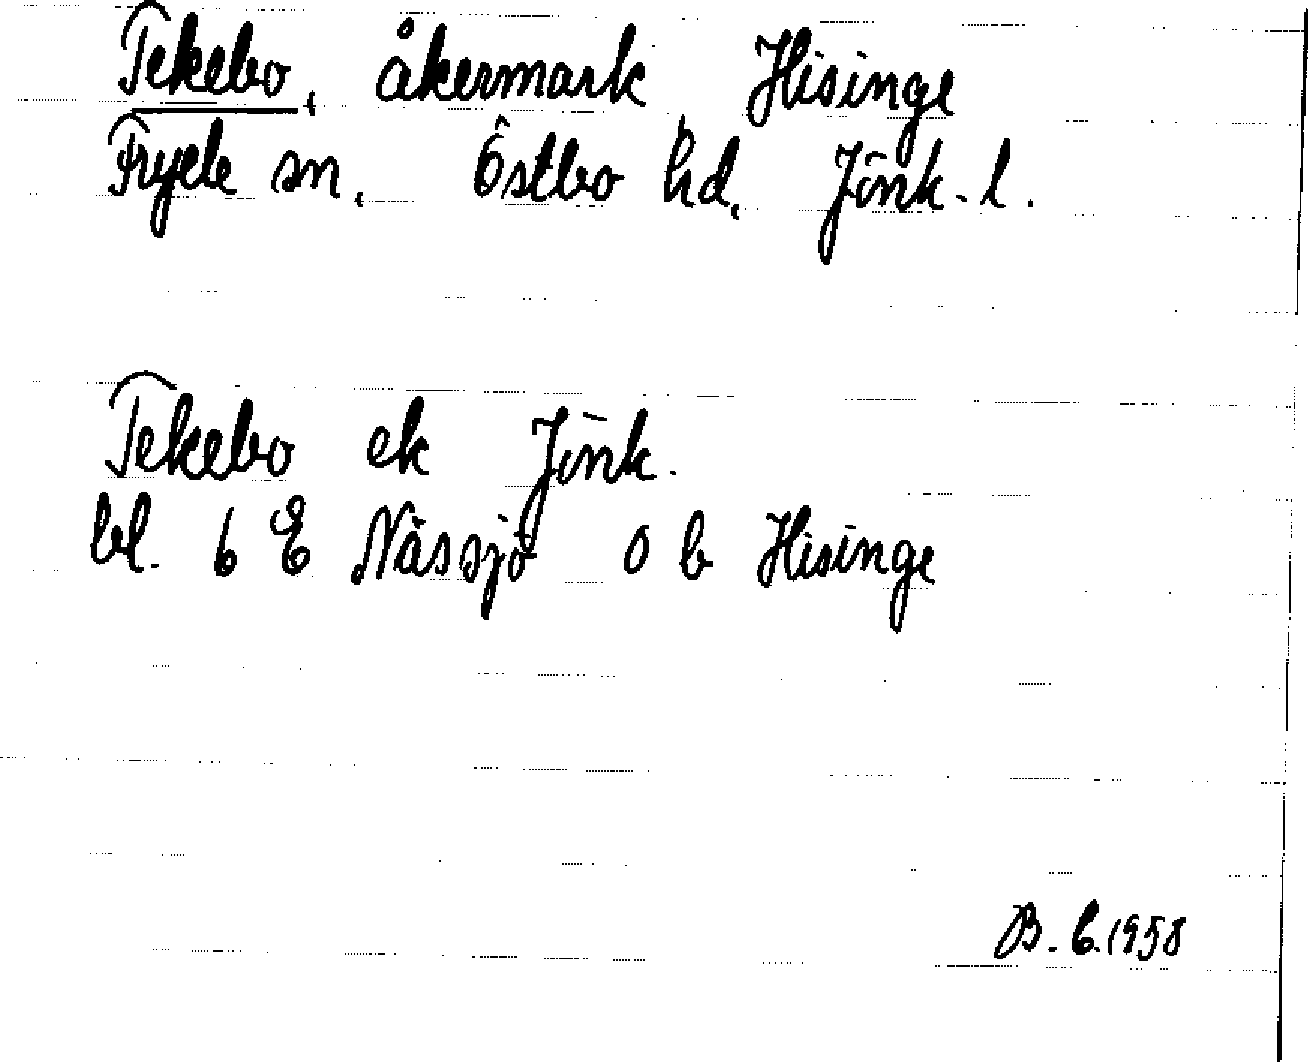 Tekebo, åkermark Hisinge
Fryele sn. Östbo hd. Jönk. l.
Tekebo ek Jönk.
bl. 6 E Nässjö 0 b Hisinge
B. E. 1958